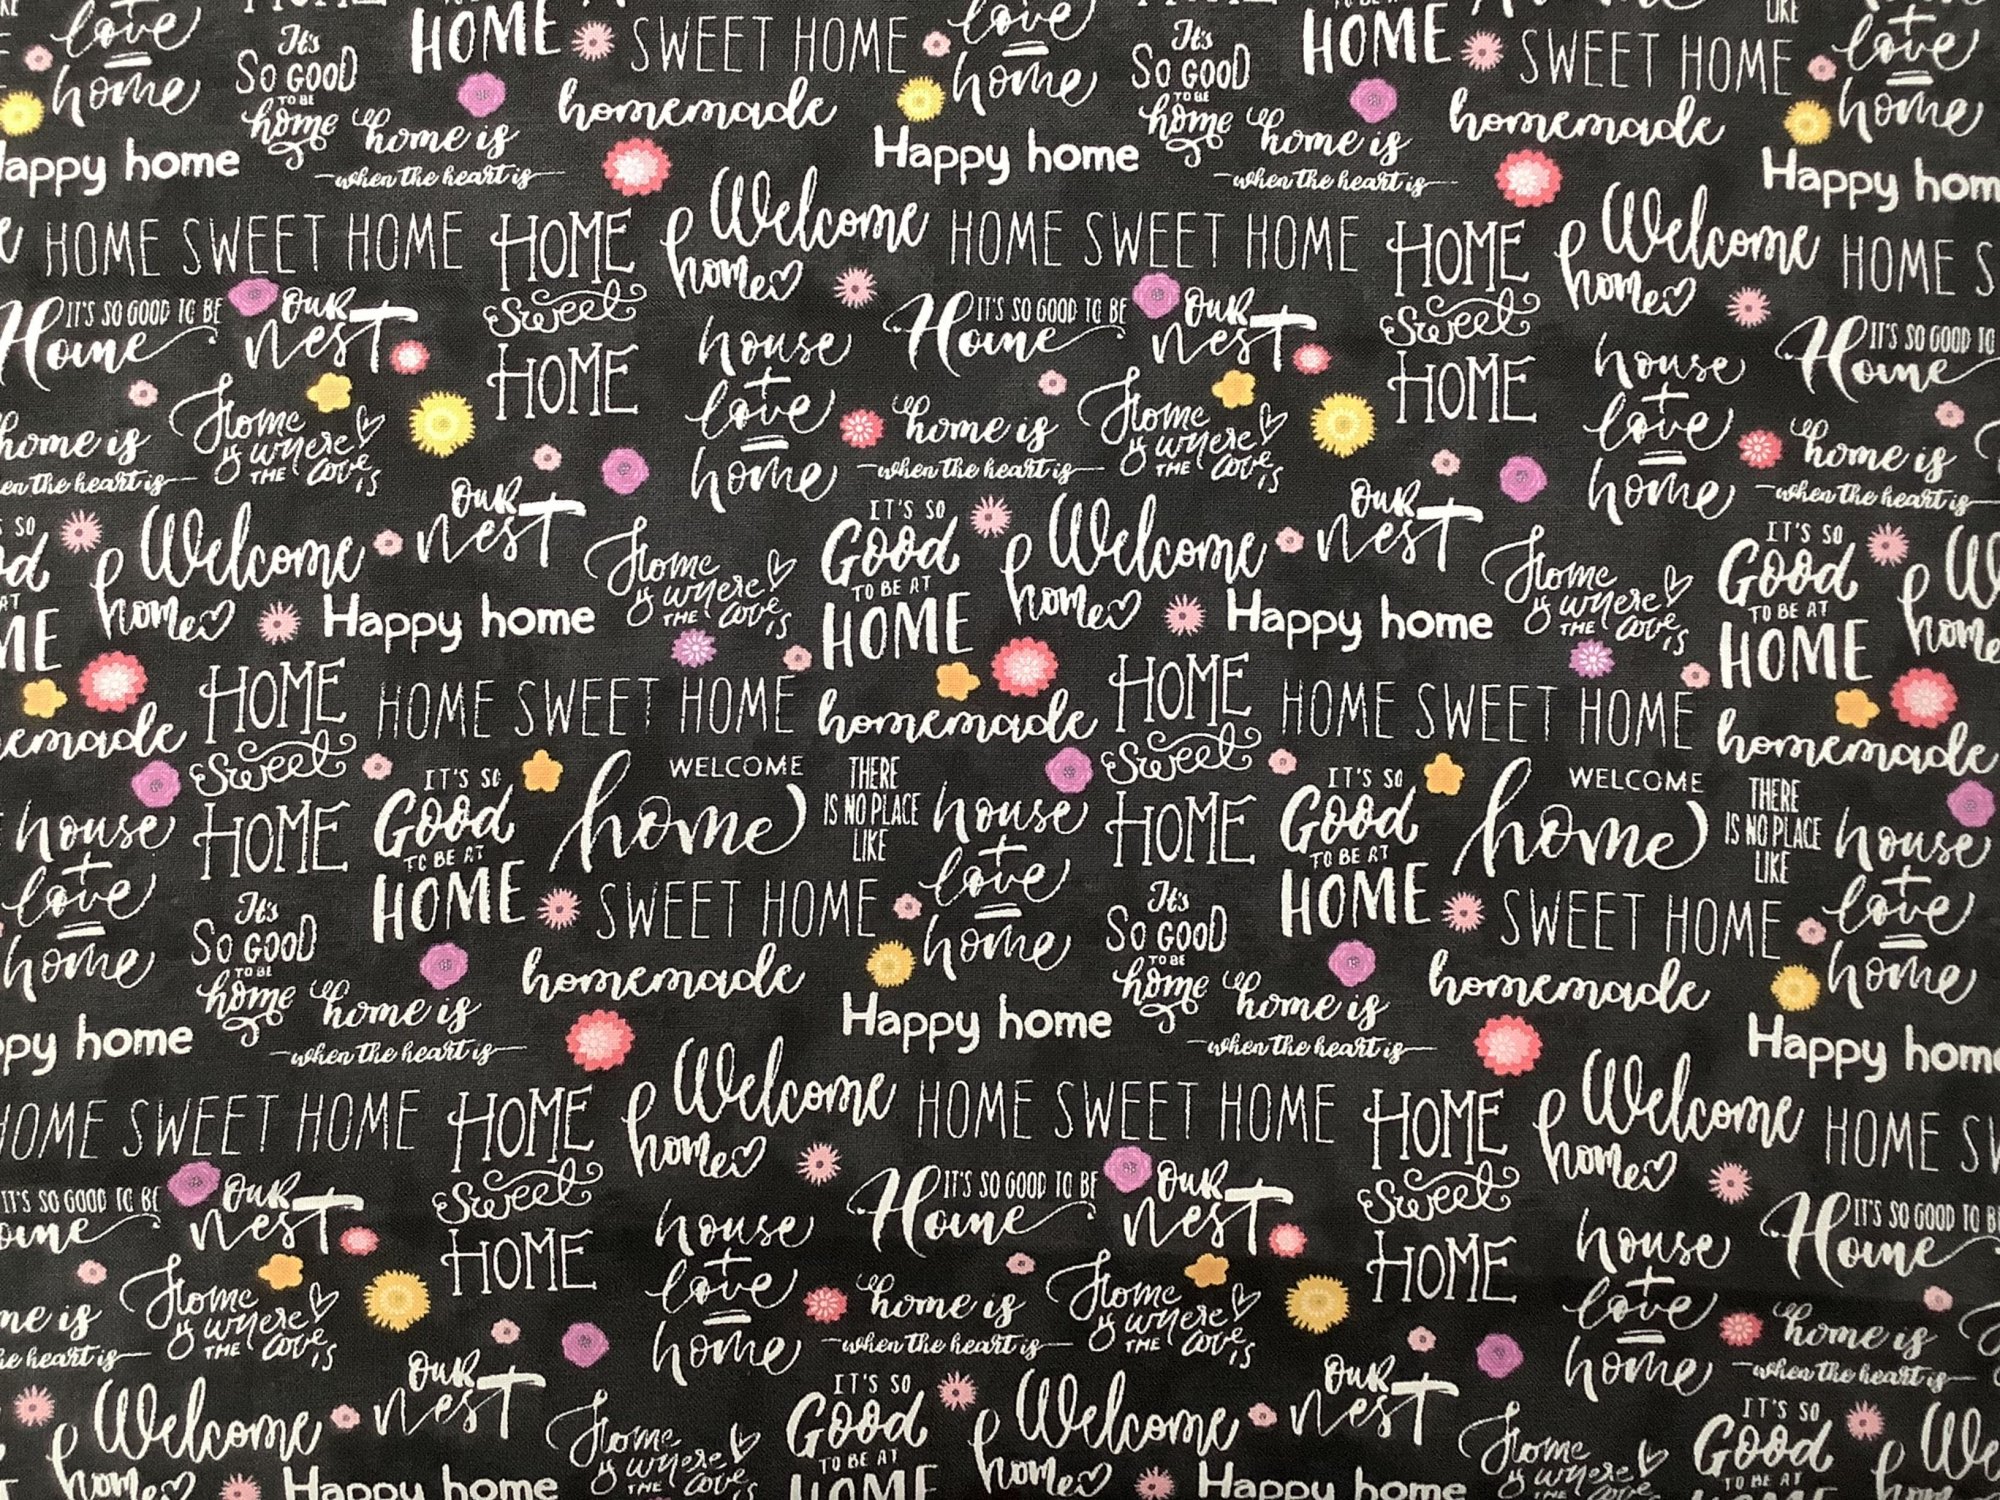 love
=
home
It's
SO GOOD
TO BE
home
HOME
SWEET HOME
homemade
love
=
home
It's
SO GOOD
TO BE
home
HOME
SWEET HOME
homemade
LIKE
love
=
home
Happy home
home is
when the heart is
Happy home
home is
when the heart is
Happy hom
HOME SWEET HOME
HOME
Sweet
HOME
Welcome
home
HOME SWEET HOME
HOME
Sweet
HOME
Welcome
home
HOME S
IT'S SO GOOD TO BE
Home
OUR
nest
house
+
love
=
home
IT'S SO GOOD TO BE
Home
OUR
nest
house
+
love
=
home
IT'S SO GOOD TO
Home
home is
en the heart is
Home
is where
THE love is
home is
when the heart is
Home
is where
THE love is
home is
when the heart is
Welcome
home
OUR
nest
Home
is where
THE love is
IT'S SO
Good
TO BE AT
HOME
Welcome
home
OUR
nest
Home
is where
THE love is
IT'S SO
Good
TO BE AT
HOME
Happy home
Happy home
emade
HOME
Sweet
HOME
HOME SWEET HOME
homemade
HOME
Sweet
HOME
HOME SWEET HOME
homemade
house
+
love
=
home
IT'S SO
Good
TO BE AT
HOME
WELCOME
home
THERE
IS NO PLACE
LIKE
SWEET HOME
house
+
love
=
home
IT'S SO
Good
TO BE AT
HOME
WELCOME
home
THERE
IS NO PLACE
LIKE
SWEET HOME
house
+
love
=
home
It's
SO GOOD
TO BE
home
home is
when the heart is
homemade
Happy home
It's
SO GOOD
TO BE
home
home is
when the heart is
homemade
Happy home
ppy home
HOME SWEET HOME
HOME
Sweet
HOME
Welcome
home
HOME SWEET HOME
HOME
Sweet
HOME
Welcome
home
HOME SW
IT'S SO GOOD TO BE
ome
OUR
nest
house
+
love
=
home
IT'S SO GOOD TO BE
Home
OUR
nest
house
+
love
=
home
IT'S SO GOOD TO B
Home
me is
he heart is
Home
is where
THE love is
home is
when the heart is
Home
is where
THE love is
home is
when the heart is
Welcome
home
OUR
nest
Home
is where
THE love is
IT'S SO
Good
TO BE AT
HOME
Welcome
home
OUR
nest
Home
is where
IT'S SO
Good
TO BE AT
Happy home
Happy home